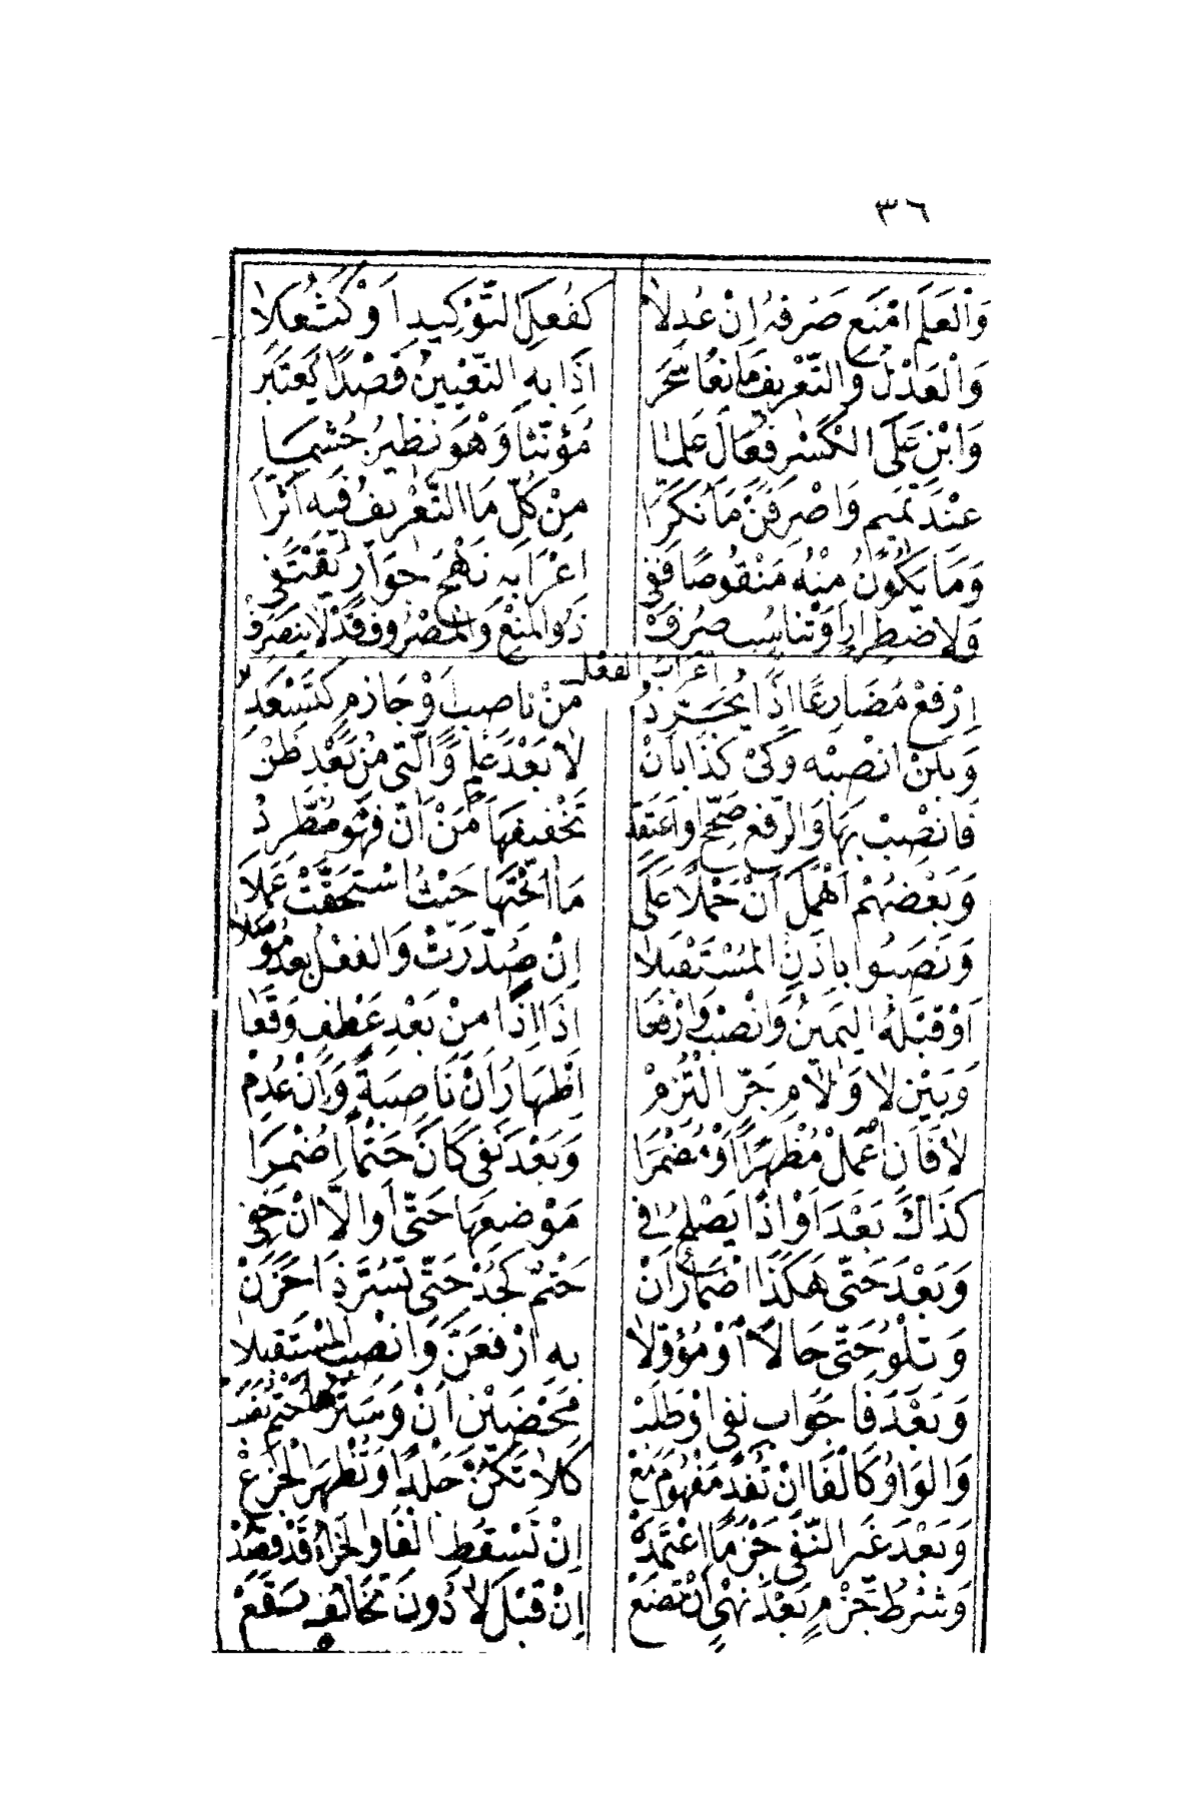 ٣٦
وَالْعَلَمَ امْنَعْ صَرْفَهُ اِنْ عُدِلَا كَفُعَلِ التَّوْكِيدِ اَوْ كَثُعَلَا
وَالْعَدْلُ وَالتَّعْرِيفُ مَانِعَا سَحَرْ اِذَا بِهِ التَّعْيِينُ قَصْدًا يُعْتَبَرْ
وَابْنِ عَلَى الْكَسْرِ فَعَالِ عَلَمَا مُؤَنَّثًا وَهْوَ نَظِيرُ جُشَمَا
عِنْدَ تَمِيمٍ وَاصْرِفَنْ مَا نُكِّرَا مِنْ كُلِّ مَا التَّعْرِيفُ فِيهِ اَثَّرَا
وَمَا يَكُونُ مِنْهُ مَنْقُوصًا فَفِي اِعْرَابِهِ نَهْجَ جَوَارٍ يَقْتَفِي
وَلِاضْطِرَارٍ اَوْ تَنَاسُبٍ صُرِفْ ذُو الْمَنْعِ وَالْمَصْرُوفُ قَدْ لَا يَنْصَرِفْ
اعراب الفعل
اِرْفَعْ مُضَارِعًا اِذَا يُجَرَّدُ مِنْ نَاصِبٍ اَوْ جَازِمٍ كَتَسْعَدُ
وَبِلَنْ انْصِبْهُ وَكَىْ كَذَا بِاَنْ لَا بَعْدَ عِلْمٍ وَالَّتِى مِنْ بَعْدِ ظَنْ
فَانْصِبْ بِهَا وَالرَّفْعَ صَحِّحْ وَاعْتَقِدْ تَخْفِيفَهَا مِنْ اَنَّ فَهْوَ مُطَّرِدْ
وَبَعْضُهُمْ اَهْمَلَ اَنْ حَمْلًا عَلَى مَا اُخْتِهَا حَيْثُ اسْتَحَقَّتْ عَمَلَا
وَنَصَبُوا بِاِذَنِ الْمُسْتَقْبَلَا اِنْ صُدِّرَتْ وَالْفِعْلُ بَعْدُ مُوصَلَا
اَوْ قَبْلَهُ الْيَمِينُ وَانْصِبْ وَارْفَعَا اِذَا اِذًا مِنْ بَعْدِ عَطْفٍ وَقَعَا
وَبَيْنَ لَا وَلَامِ جَرٍّ الْتُزِمْ اِظْهَارُ اَنْ نَاصِبَةً وَاِنْ عُدِمْ
لَا فَاَنِ اعْمِلْ مُظْهِرًا اَوْ مُضْمِرَا وَبَعْدَ نَفْىِ كَانَ حَتْمًا اُضْمِرَا
كَذَاكَ بَعْدَ اَوْ اِذَا يَصْلُحُ فِى مَوْضِعِهَا حَتَّى اَوِ الَّا اَنْ خَفِى
وَبَعْدَ حَتَّى هَكَذَا اِضْمَارُ اَنْ حَتْمٌ كَجُدْ حَتَّى تَسُرَّ ذَا حَزَنْ
وَتِلْوَ حَتَّى حَالًا اَوْ مُؤَوَّلَا بِهِ ارْفَعَنَّ وَانْصِبِ الْمُسْتَقْبَلَا
وَبَعْدَ فَا جَوَابِ نَفْىٍ اَوْ طَلَبْ مَحْضَيْنِ اَنْ وَسَتْرُهَا حَتْمٌ نَصَبْ
وَالْوَاوُ كَالْفَا اِنْ تُفِدْ مَفْهُومَ مَعْ كَلَا تَكُنْ جَلْدًا وَتُظْهِرَ الْجَزَعْ
وَبَعْدَ غَيْرِ النَّفْىِ جَزْمًا اعْتَمِدْ اِنْ تَسْقُطِ الْفَا وَالْجَزَاءُ قَدْ قُصِدْ
وَشَرْطُ جَزْمٍ بَعْدَ نَهْىٍ اَنْ تَضَعْ اِنْ قَبْلَ لَا دُونَ تَخَالُفٍ يَقَعْ